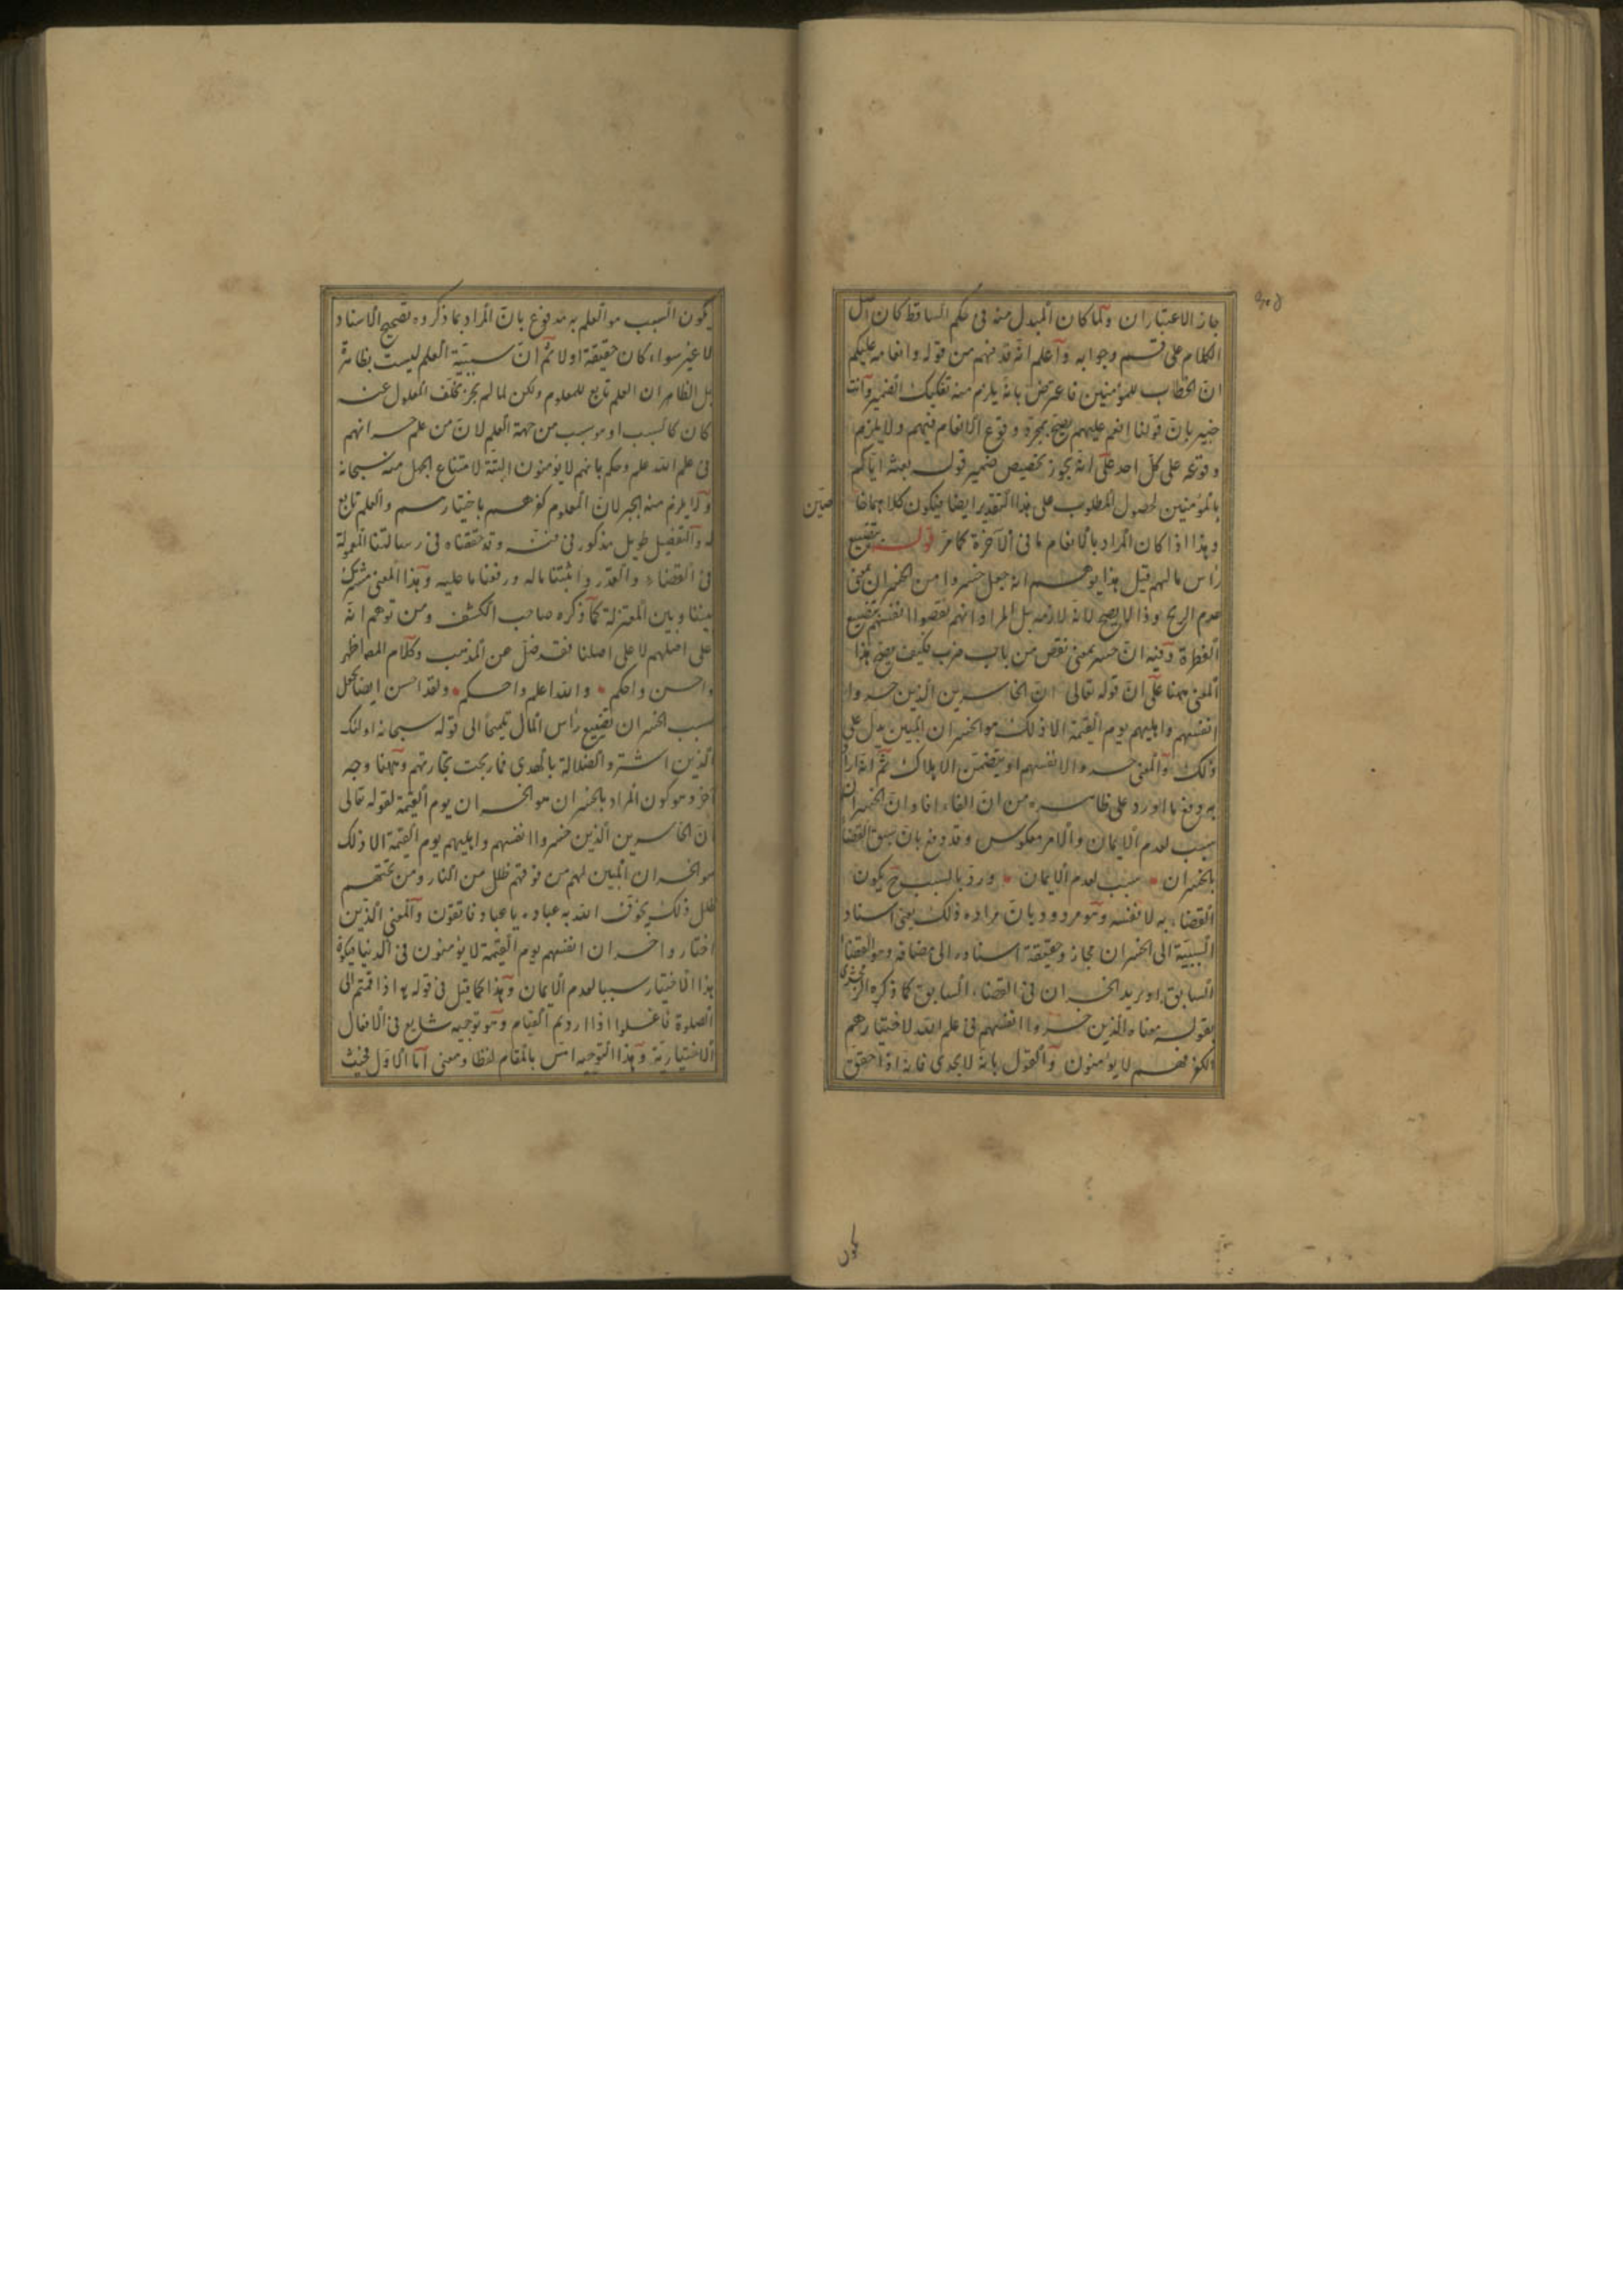 جاز الاعتباران ولما كان المبدل منه فى حكم الساقط كان اصل
الكلام على قسم وجوابه واعلم انه قد فهم من قوله وانعامه عليكم
ان الخطاب للمؤمنين فاعترض بانه يلزم منه تفكيك الضمير وانت
خبير بان قولنا انعم عليهم يصح بمجرد وقوع الانعام فيهم ولا يلزم
وقوعه على كل احد على انه يجوز تخصيص ضمير قوله بعثه اياكم
بالمؤمنين لحصول المطلوب على هذا التقدير ايضا فيكون كلاهما خا
صين
وهذا اذا كان المراد بالانعام ما فى الآخرة كما مر قوله بتضييع
رأس مالهم قيل هذا يوهم انه جعل خسروا من الخسران بمعنى
عدم الربح وذا لا يصح لانه لازم بل المراد انهم نقصوا انفسهم بتضييع
الفطرة وفيه ان خسر بمعنى نقص من باب ضرب فكيف يصح هذا
المعنى ههنا على ان قوله تعالى ان الخاسرين الذين خسروا
انفسهم واهليهم يوم القيمة الا ذلك هو الخسران المبين يدل على
ذلك والمعنى خسروا لانفسهم او بتضمن الاهلاك ثم انه ارا
به دفع ما اورد على ظاهره من ان الفاء افاد ان الخسران
سبب لعدم الايمان والامر معكوس وقد دفع بان سبق القضا
بالخسران سبب لعدم الايمان ورد بالسبب ح يكون
القضاء به لا نفسه وهو مردود بان مراده ذلك يعنى اسناد
السببية الى الخسران مجاز وحقيقة اسناده الى مضافه وهو القضا
السابق او يريد الخسران فى القضاء السابق كما ذكره الزمخشرى
بقوله معناه الذين خسروا انفسهم فى علم الله لاختيارهم
الكفر فهم لا يؤمنون والقول بانه لا يجدى فانه اذا حقق
يكون
يكون السبب هو العلم به مدفوع بان المراد بما ذكروه تصحيح الاسناد
لا غير سواء كان حقيقة اولا ثم ان سببية العلم ليست بظاهرة
بل الظاهر ان العلم تابع للمعلوم ولكن لما لم يجز تخلف المعلول عنه
كان كالسبب او هو سبب من جهة العلم لان من علم خسرانهم
فى علم الله علم وحكم بانهم لا يؤمنون البتة لامتناع الجهل منه سبحانه
ولا يلزم منه الجبر لان المعلوم كفرهم باختيارهم والعلم تابع
له والتفصيل طويل مذكور فى فنه وقد حققناه فى رسالتنا المعمولة
فى القضاء والقدر واثبتنا ماله ورفعنا ما عليه وهذا المعنى مشترك
بيننا وبين المعتزلة كما ذكره صاحب الكشف ومن توهم انه
على اصلهم لا على اصلنا فقد ضل عن المذهب وكلام المص اظهر
واحسن واحكم والله اعلم واحكم ولقد احسن ايضا بجعل
سبب الخسران تضييع رأس المال تلميحا الى قوله سبحانه اولئك
الذين اشتروا الضلالة بالهدى فما ربحت تجارتهم وههنا وجه
آخر وهو كون المراد بالخسران هو الخسران يوم القيمة لقوله تعالى
ان الخاسرين الذين خسروا انفسهم واهليهم يوم القيمة الا ذلك
هو الخسران المبين لهم من فوقهم ظلل من النار ومن تحتهم
ظلل ذلك يخوف الله به عباده يا عباد فاتقون والمعنى الذين
اختاروا خسران انفسهم يوم القيمة لا يؤمنون فى الدنيا فيكون
هذا الاختيار سببا لعدم الايمان وهذا كما قيل فى قوله اذا قمتم الى
الصلوة فاغسلوا اذا اردتم القيام وهو توجيه شايع فى الافعال
الاختيارية وهذا التوجيه امس بالمقام لفظا ومعنى اما الاول فحيث